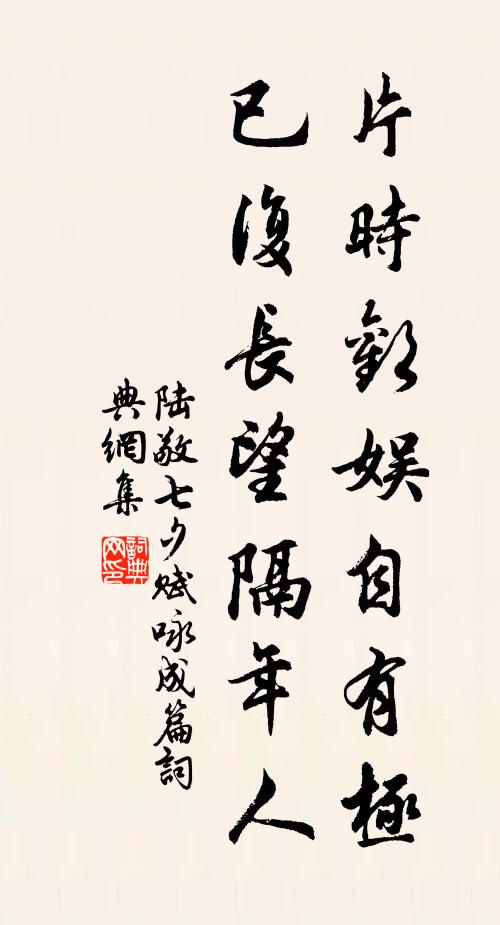 片時歡娛自有極
已復長望隔年人
陆敬七夕賦咏成篇詞
典網集
詞典网印